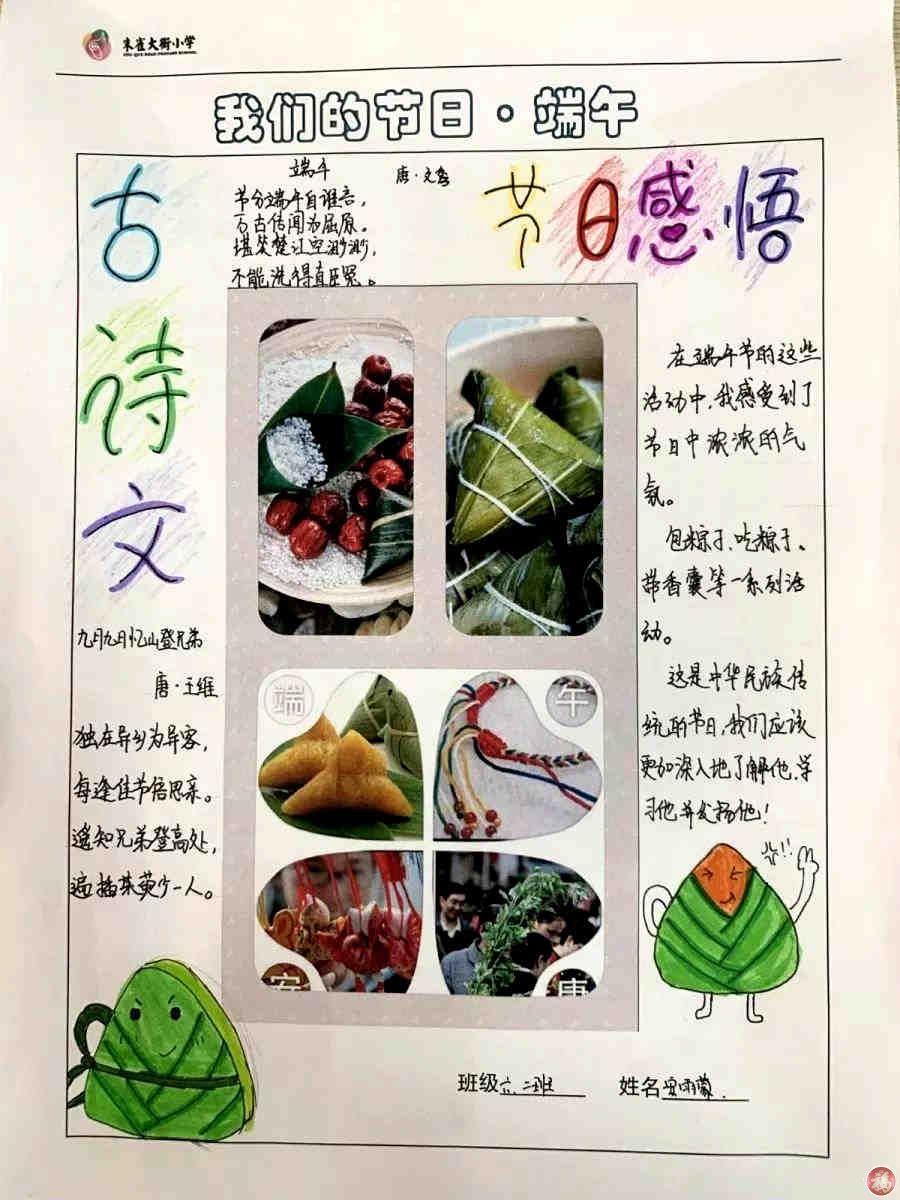 朱雀大街小学
我们的节日·端午
古诗文
端午
唐·文秀
节分端午自谁言，
万古传闻为屈原。
堪笑楚江空渺渺，
不能洗得直臣冤。
九月九日忆山登兄弟
唐·王维
独在异乡为异客，
每逢佳节倍思亲。
遥知兄弟登高处，
遍插茱萸少一人。
节日感悟
在端午节的这些
活动中，我感受到了
节日中浓浓的气
氛。
包粽子、吃粽子、
带香囊等一系列活
动。
这是中华民族传
统的节日，我们应该
更加深入地了解他，学
习他并发扬他！
端
午
安
康
班级六.二班
姓名
福